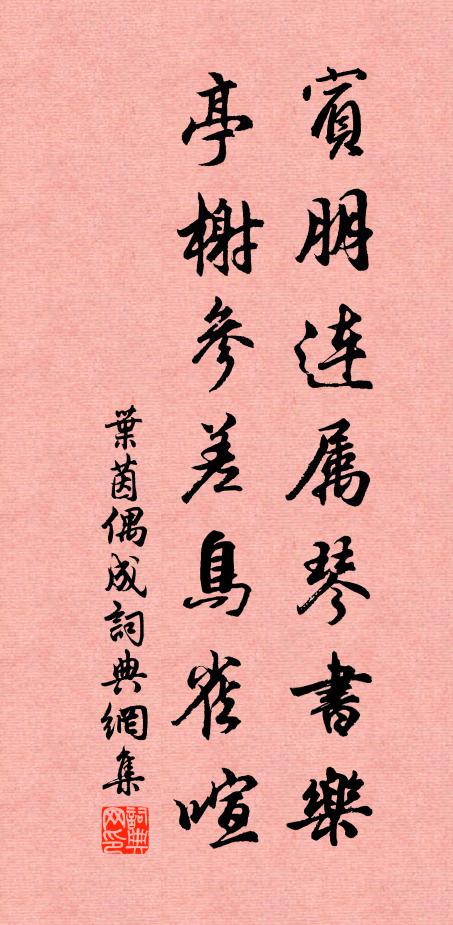 賓朋连属琴書樂
亭榭參差鳥雀喧
葉茵偶成詞典網集
詞典網印